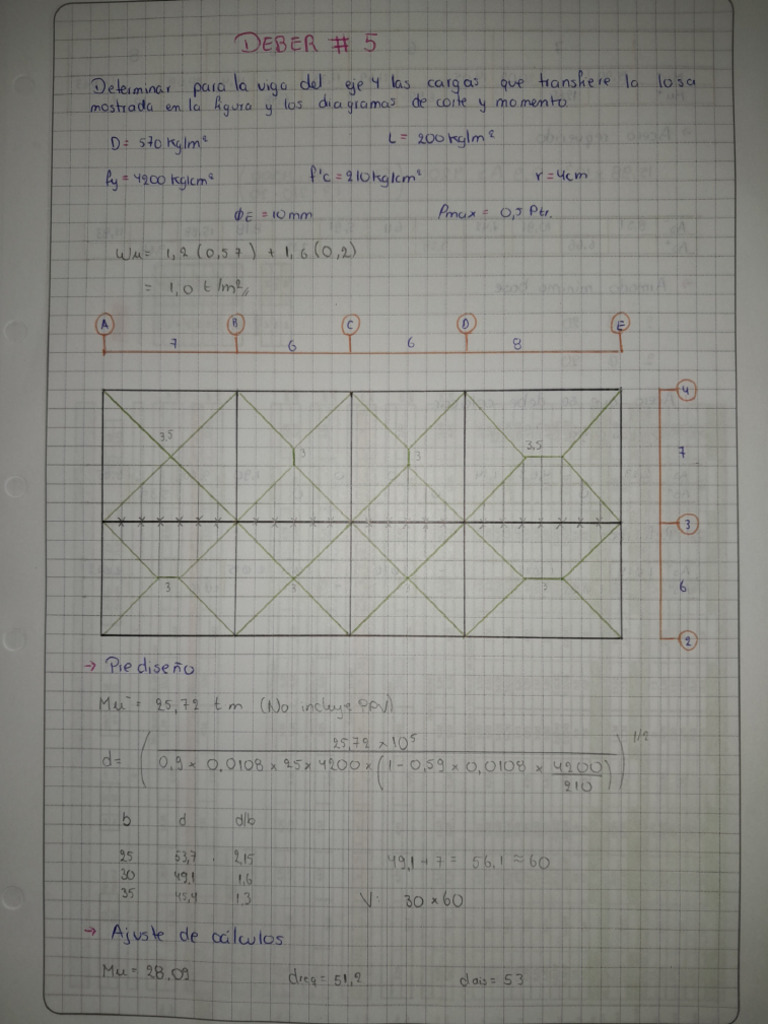 DEBER # 5
Determinar para la viga del eje 4 las cargas que transfiere la losa
mostrada en la figura y los diagramas de corte y momento
D= 570 kg/m² L= 200 kg/m²
fy= 4200 kg/cm² f'c= 210 kg/cm² r= 4cm
φE = 10 mm ρmax = 0,5 ρtr.
Wu= 1,2 (0,57) + 1,6 (0,2)
= 1,0 t/m²
A B C D E
7 6 6 8
4
3,5 3 3 3,5
7
3
3 3 3 3
6
2
→ Prediseño
Mu⁻ = 25,72 t m (No incluye PPV)
d= ( 25,72 × 10⁵ / 0,9 × 0,0108 × 25 × 4200 × (1 - 0,59 × 0,0108 × 4200/210) )^1/2
b d d/b
25 53,7 2,15
30 49,1 1,6
35 45,4 1,3
49,1 + 7 = 56,1 ≈ 60
V: 30 × 60
→ Ajuste de cálculos
Mu = 28.09 dreq = 51,2 ddis = 53